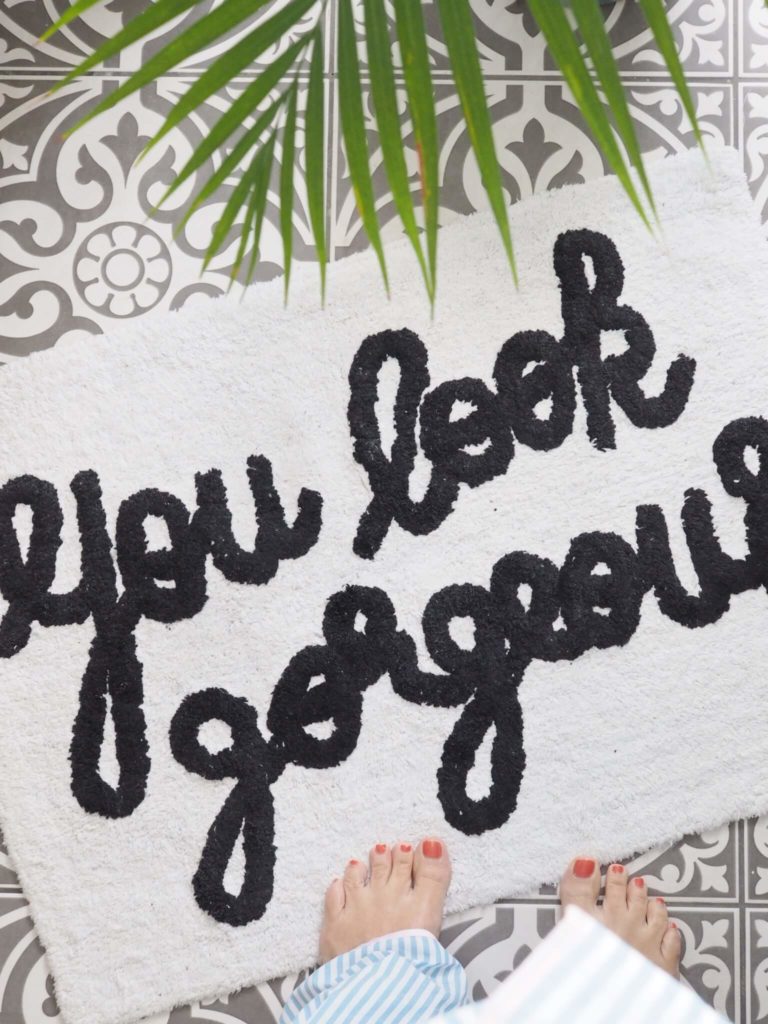 you look
gorgeous